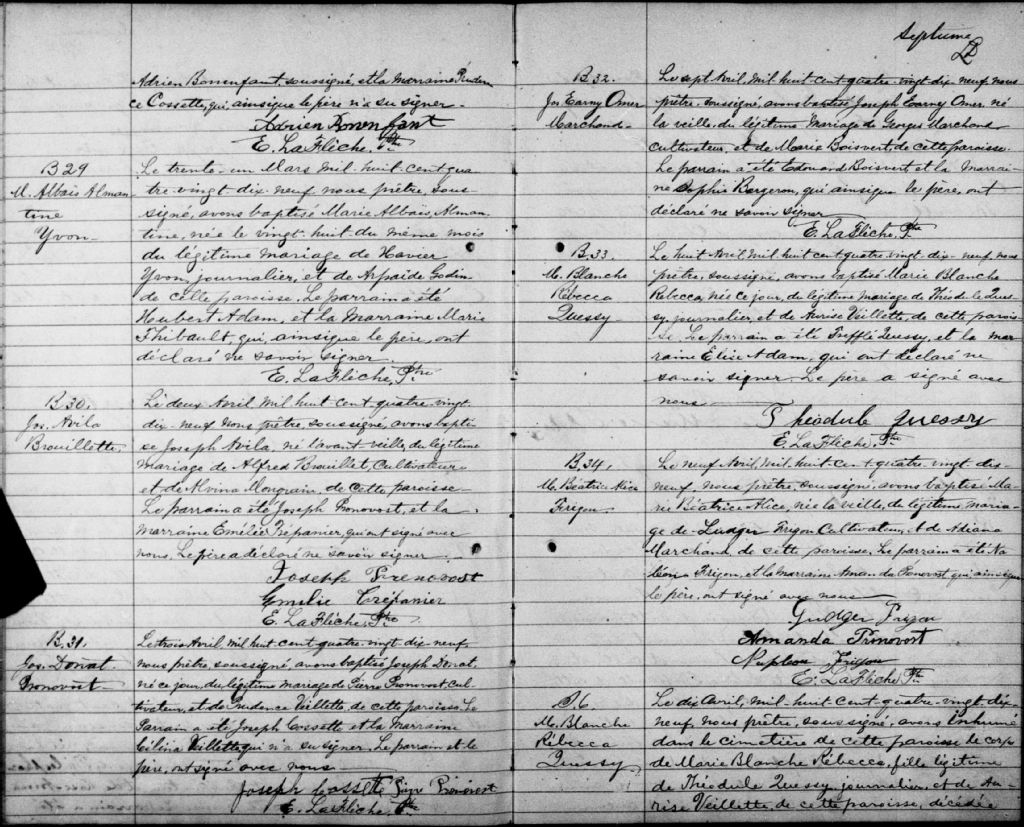 Adrien Bonenfant soussigné, et la marraine Pruden
ce Cossette, qui, ainsique le père n'a su signer.
Adrien Bonenfant
E. LaFlèche, Ptre
B 29
M. Albais Alman-
tine
Yvon
Le trente-un Mars mil huit cent qua
tre-vingt dix-neuf nous prêtre, sous
signé, avons baptisé Marie Albaïs, Alman-
tine, née le vingt-huit du même mois
du légitime mariage de Xavier
Yvon, journalier, et de Arpaide Godin
de cette paroisse. Le parrain a été
Hubert Adam, et la Marraine Marie
Thibault, qui, ainsique le père, ont
déclaré ne savoir signer.
E. LaFlèche, Ptre
B 30.
Jos. Avila
Brouillette
Le deux Avril Mil huit-cent quatre-vingt
dix-neuf Nous prêtre, soussigné, avons bapti-
sé Joseph Avila, né l'avant-veille, du légitime
mariage de Alfred Brouillet, Cultivateur
et de Alvina Mongrain, de cette paroisse
Le parrain a été Joseph Pronovost, et la
marraine Emélie Trépanier, qui ont signé avec
nous. Le père a déclaré ne savoir signer
Joseph Prenovost
Emilie Trépanier
E. LaFlèche, Ptre
B. 31.
Jos. Donat.
Pronovost
Le trois Avril, mil huit cent quatre vingt dix-neuf,
nous prêtre, soussigné, avons baptisé Joseph Donat,
né ce jour, du légitime mariage de Pierre Pronovost, cul-
tivateur, et de Prudence Veillette, de cette paroisse. Le
Parrain a été Joseph Cossette et la marraine
Célina Veillette qui n'a su signer. Le parrain et le
père, ont signé avec nous
Joseph Cossette Pierr Pronovost
E. LaFlèche, Ptre
Septième
B. 32.
Jos. Earny Omer
Marchand
Le sept Avril, Mil huit-cent-quatre-vingt-dix-neuf, nous
prêtre soussigné, avons baptisé Joseph Earny Omer, né
la veille, du légitime Mariage de Georges Marchand
cultivateur, et de Marie Boisvert de cette paroisse.
Le parrain a été Edouard Boisvert et la marrai-
ne Sophie Bergeron, qui ainsique le père, ont
déclaré ne savoir signer
E. LaFlèche, Ptre
B. 33.
M. Blanche
Rébecca
Quessy
Le huit Avril, Mil huit cent quatre vingt dix-neuf, nous
prêtre, soussigné, avons baptisé Marie Blanche
Rébecca, née ce jour, du légitime mariage de Théodule Ques-
sy, journalier, et de Aurise Veillette, de cette parois-
se. Le parrain a été Trefflé Quessy, et la mar
raine Elise Adam, qui ont déclaré ne
savoir signer. Le père a signé avec
nous
Théodule Quessy
E. LaFlèche, Ptre
B. 34.
M. Béatrice Alice
Frigon
Le neuf Avril, mil huit-cent-quatre-vingt dix-
neuf, nous prêtre, soussigné, avons baptisé Ma-
rie Béatrice Alice, née la veille, de légitime maria-
ge de Ludger Frigon Cultivateur, et de Adiana
Marchand, de cette paroisse. Le parrain a été Na
léon Frigon, et la marraine Amanda Pronovost qui ainsique
le père, ont signé avec nous
Ludger Frigon
Amanda Prinovost
Napoleon Frigon
E. LaFlèche, Ptre
S. 6
M. Blanche
Rébecca
Quessy
Le dix Avril, mil huit-cent-quatre-vingt-dix-
neuf, nous prêtre, soussigné, avons inhumé
dans le cimetière de cette paroisse le corps
de Marie Blanche Rébecca, fille légitime
de Théodule Quessy, journalier, et de Au-
rise Veillette de cette paroisse, décédée